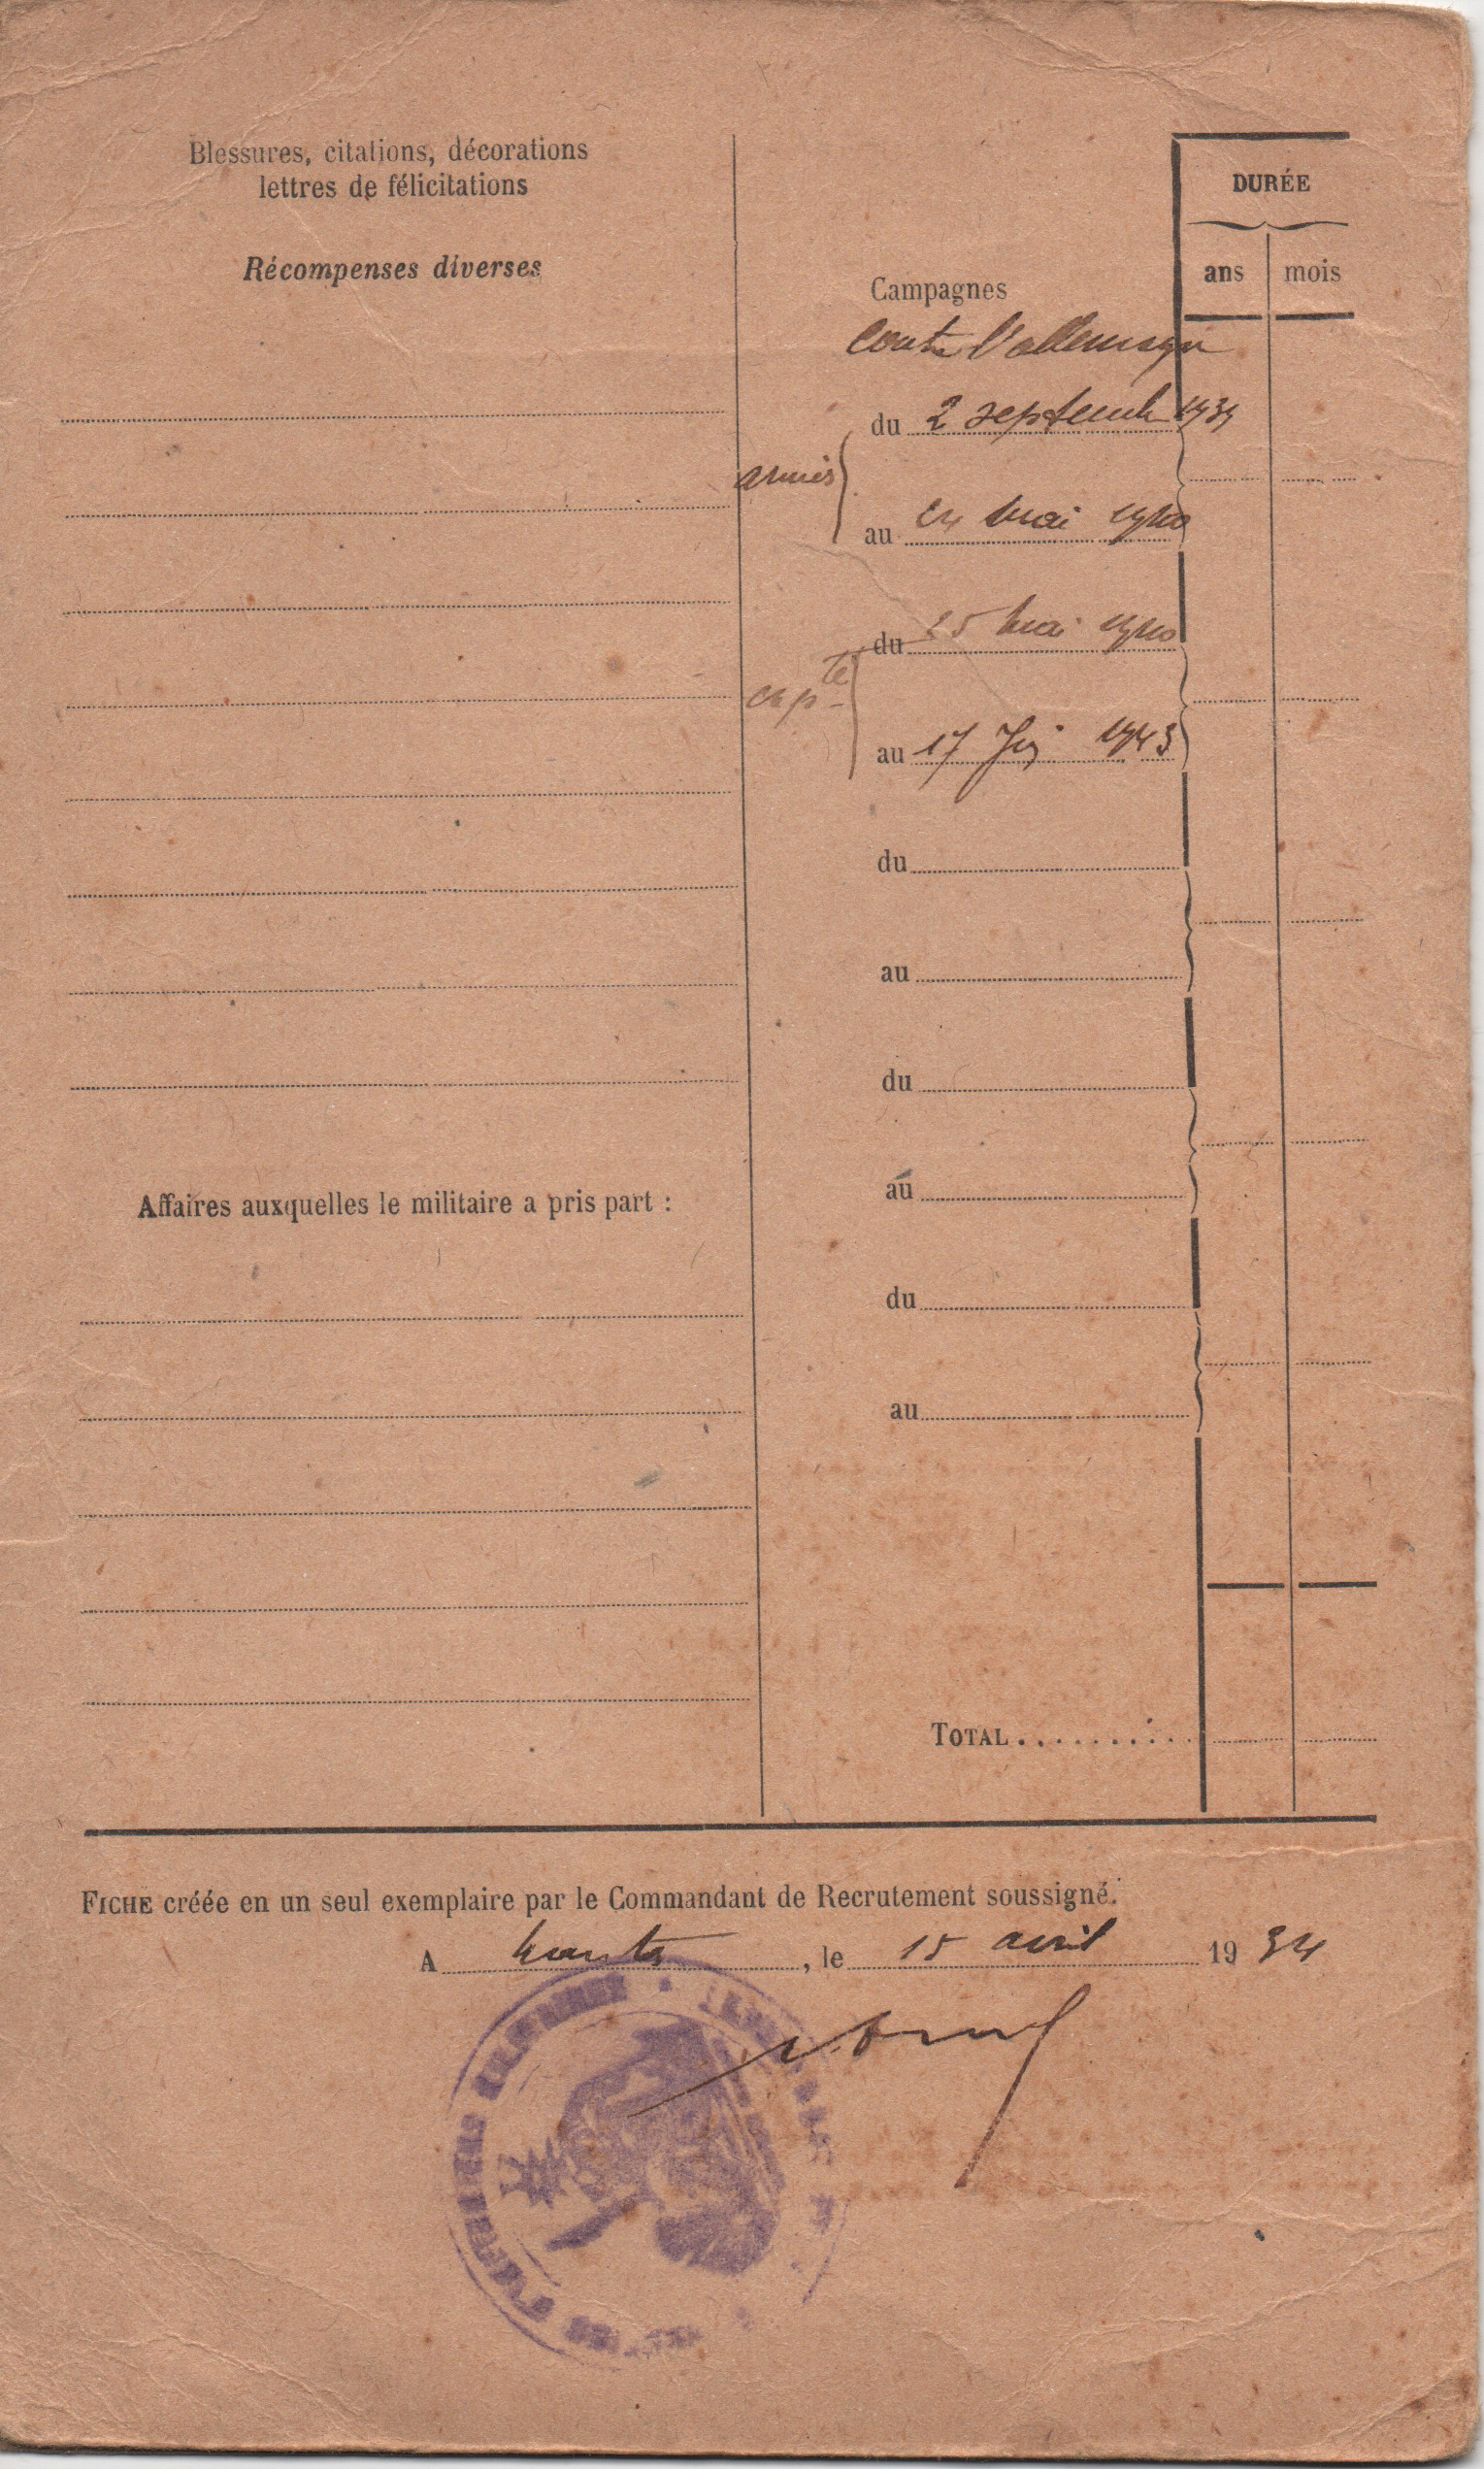 Blessures, citations, décorations
lettres de félicitations
Récompenses diverses
Affaires auxquelles le militaire a pris part :
DURÉE
ans mois
Campagnes
Contre l'allemagne
du 2 septembre 1939
armées
au 24 mai 1940
du 25 mai 1940
capté
au 17 1943
du
au
du
au
du
au
TOTAL..........
FICHE créée en un seul exemplaire par le Commandant de Recrutement soussigné.
A nantes, le 15 avril 1934